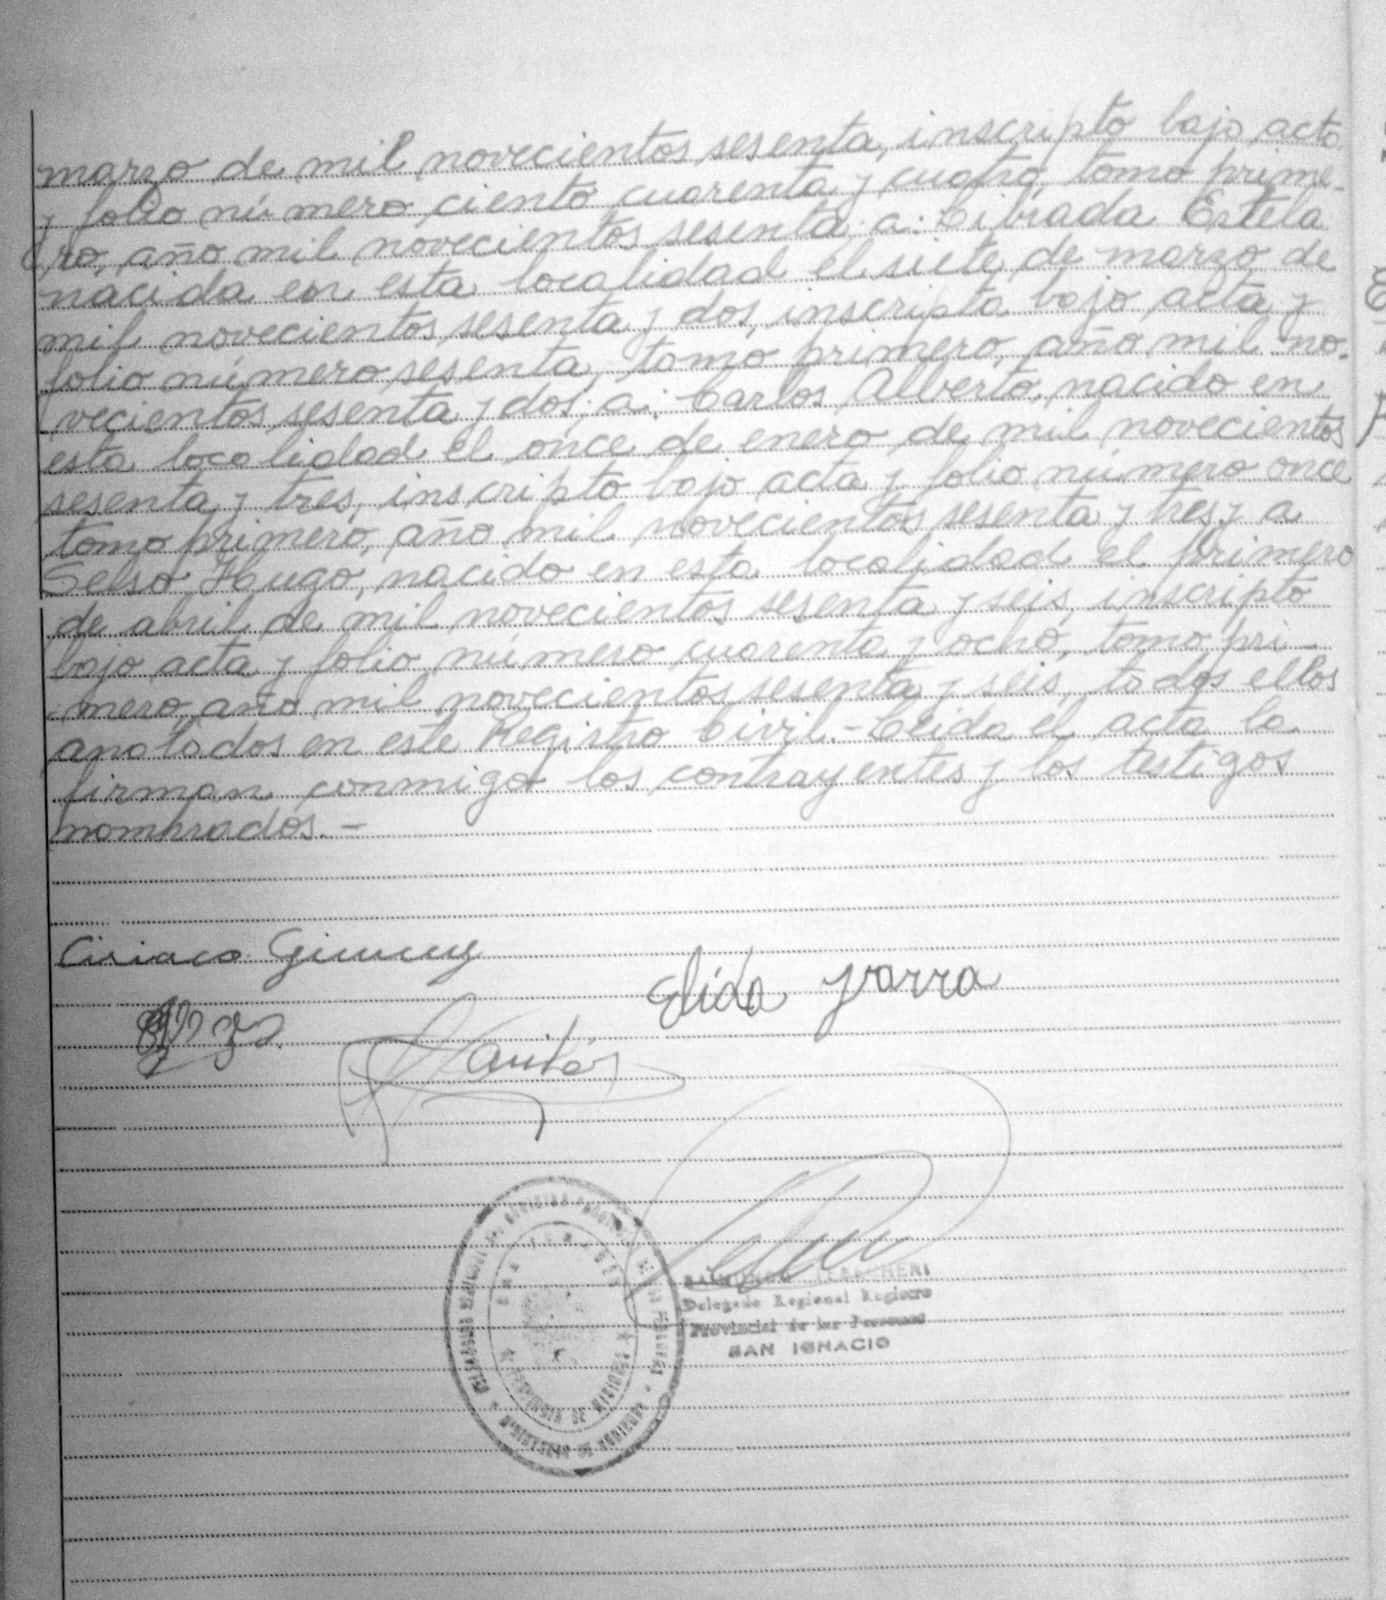 marzo de mil novecientos sesenta, inscripto bajo acta
y folio número ciento cuarenta y cuatro, tomo prime-
ro, año mil novecientos sesenta a: Librada Estela
nacida en esta localidad el siete de marzo de
mil novecientos sesenta y dos, inscripta bajo acta y
folio número sesenta, tomo primero, año mil no-
vecientos sesenta y dos; a: Carlos Alberto, nacido en
esta localidad el once de enero de mil novecientos
sesenta y tres, inscripto bajo acta y folio número once
tomo primero, año mil novecientos sesenta y tres y a
Selso Hugo, nacido en esta localidad el primero
de abril de mil novecientos sesenta y seis, inscripto
bajo acta y folio número cuarenta y ocho, tomo pri-
mero, año mil novecientos sesenta y seis, todos ellos
anotados en este Registro Civil.- Leida el acta la
firman conmigo los contrayentes y los testigos
nombrados.-
Ciriaco
Elida Yarra
Delegado Regional Registro
Provincial de las Personas
SAN IGNACIO
PROVINCIA DE MISIONES